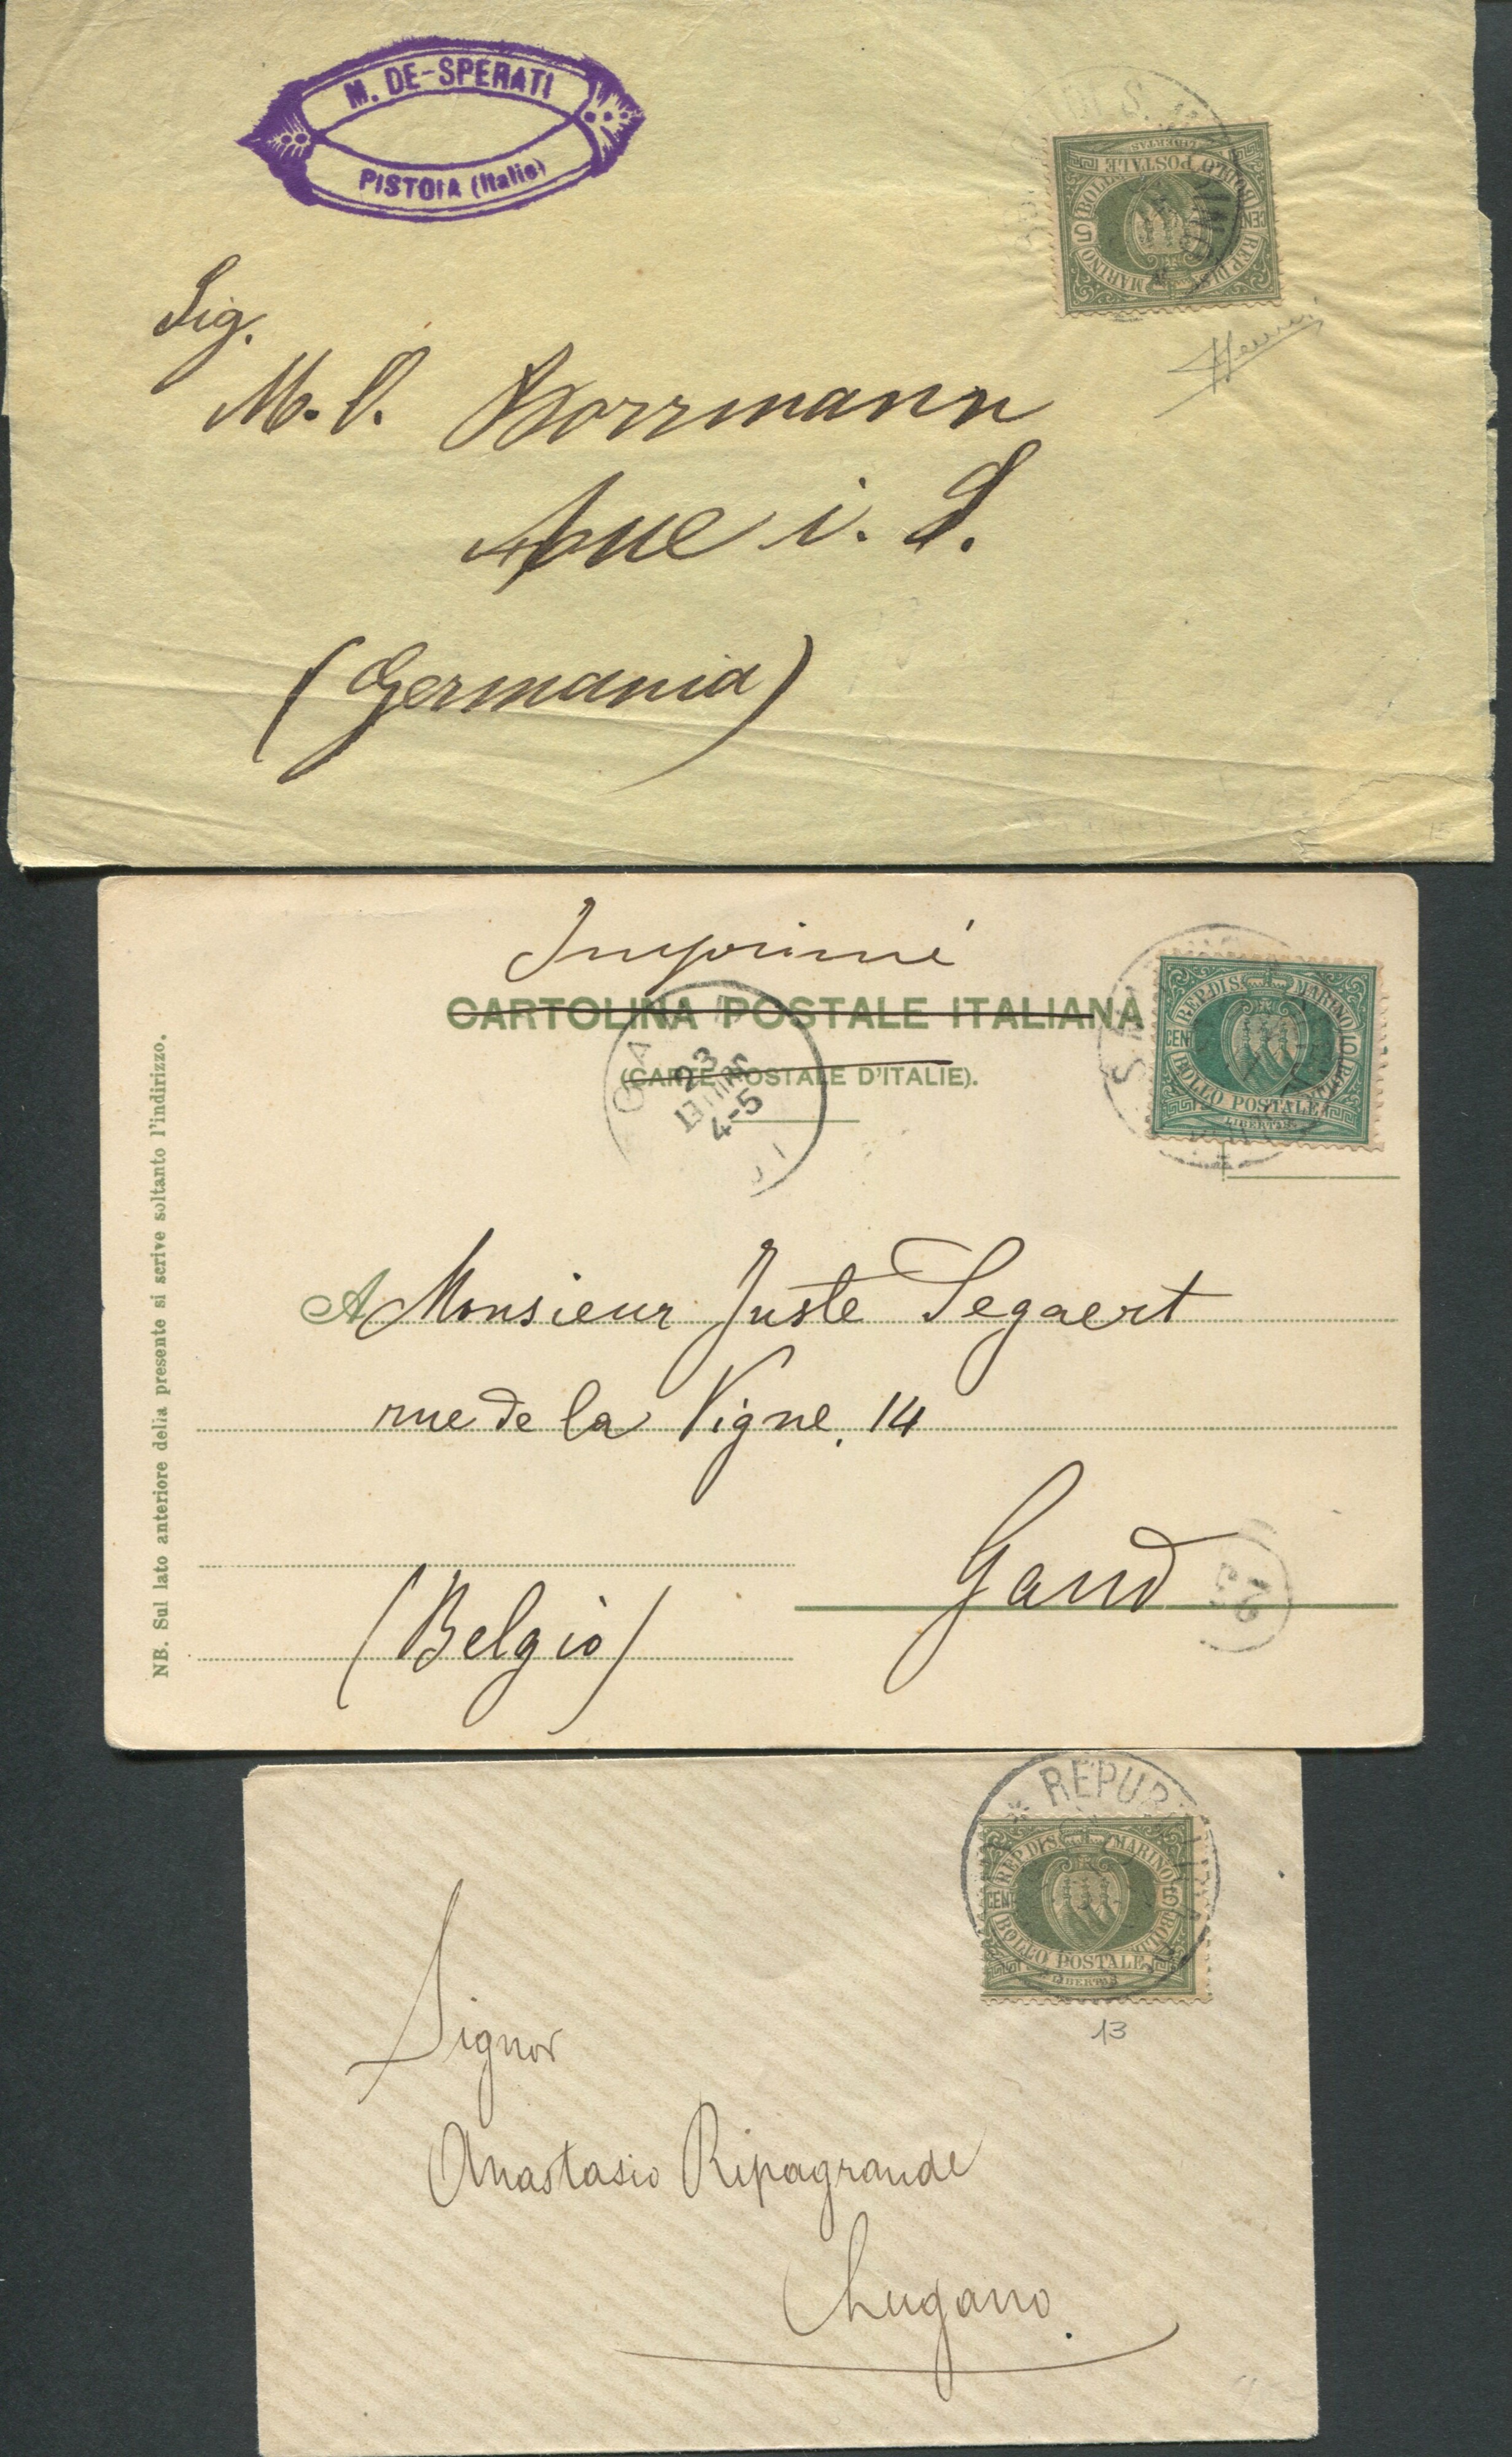 M. DE-SPERATI
PISTOIA (Italie)
REP. DI S. MARINO
CEN. 5
BOLLO POSTALE
LIBERTAS
Sig.
M. O. Borrmann
Aue i. S.
(Germania)
Imprimé
CARTOLINA POSTALE ITALIANA
(CARTE POSTALE D'ITALIE).
23
4-5
REP. DI S. MARINO
CEN. 5
BOLLO POSTALE
LIBERTAS
NB. Sul lato anteriore della presente si scrive soltanto l'indirizzo.
A Monsieur Juste Segaert
rue de la Vigne, 14
Gand
(Belgio)
REPUB
REP. DI S. MARINO
CEN. 5
BOLLO POSTALE
LIBERTAS
13
Signor
Anastasio Ripagrande
Lugano